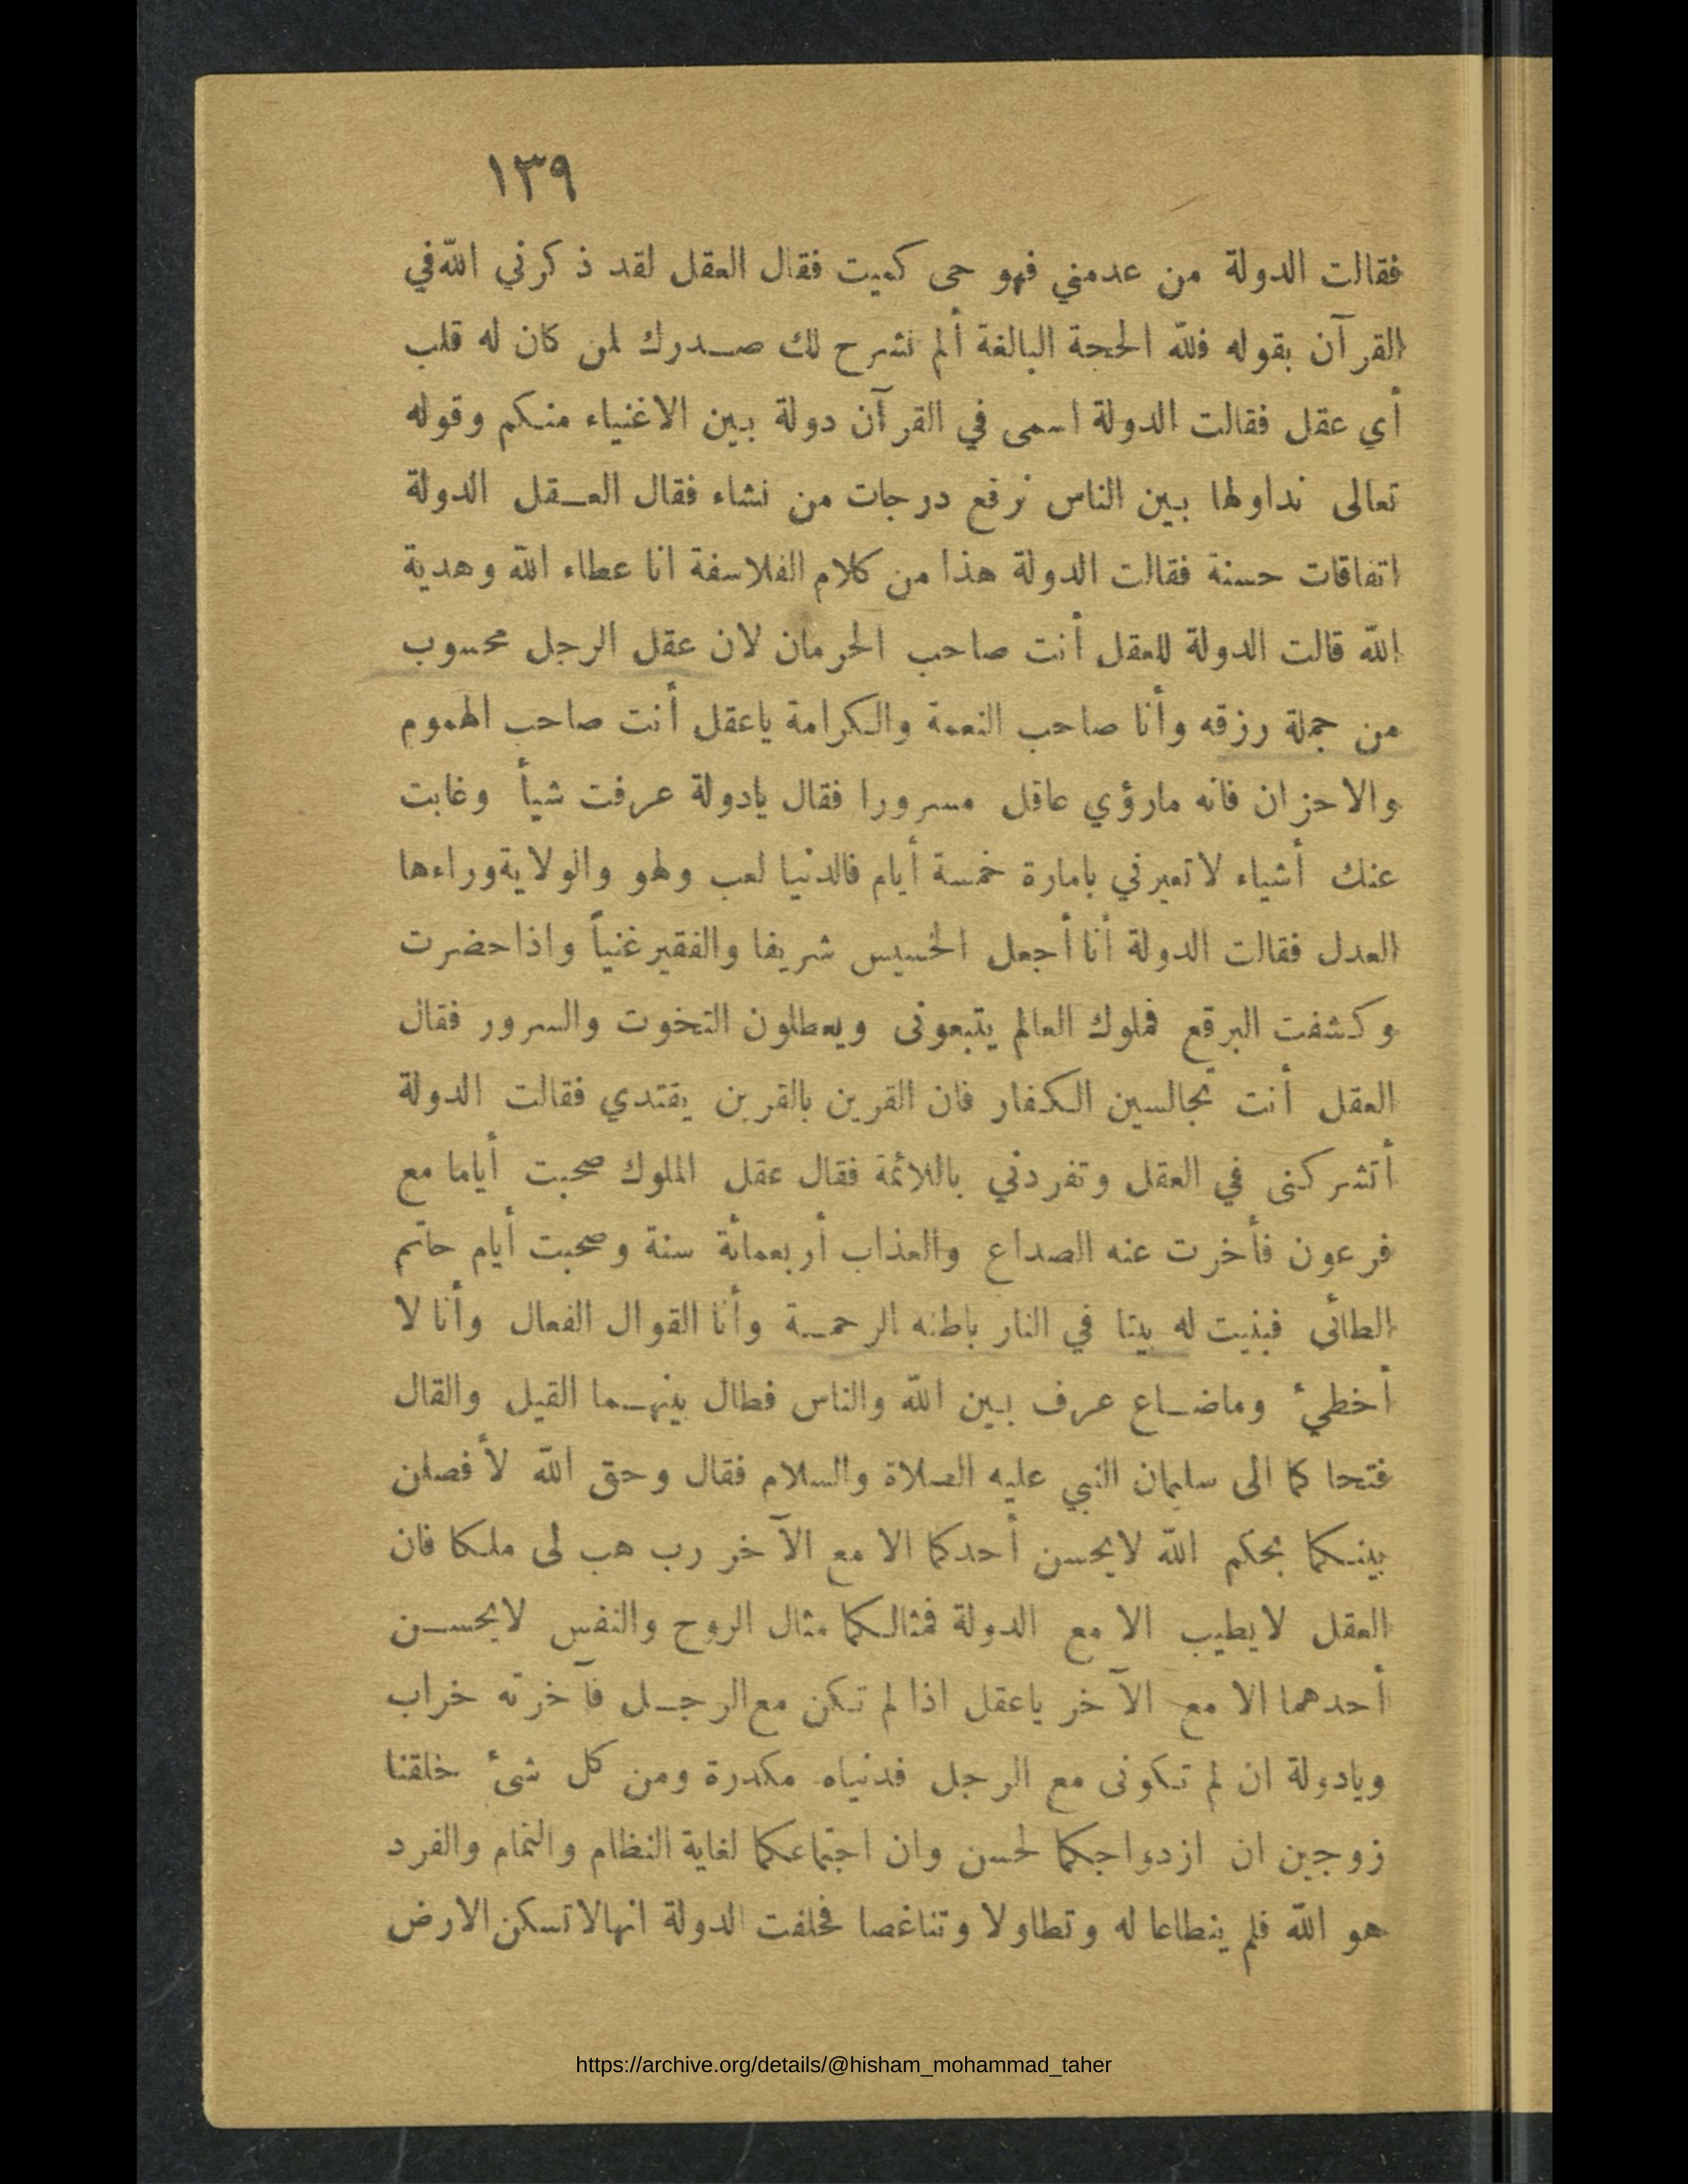 ١٣٩
فقالت الدولة من عدمني فهو حى كميت فقال العقل لقد ذكرني الله في
القرآن بقوله فلله الحجة البالغة ألم نشرح لك صدرك لمن كان له قلب
أي عقل فقالت الدولة اسمى في القرآن دولة بين الاغنياء منكم وقوله
تعالى نداولها بين الناس نرفع درجات من نشاء فقال العقل الدولة
اتفاقات حسنة فقالت الدولة هذا من كلام الفلاسفة انا عطاء الله وهدية
الله قالت الدولة للعقل أنت صاحب الحرمان لان عقل الرجل محسوب
من جملة رزقه وأنا صاحب النعمة والكرامة ياعقل أنت صاحب الهموم
والاحزان فانه مارؤي عاقل مسرورا فقال يادولة عرفت شيأ وغابت
عنك أشياء لاتعيرني بامارة خمسة أيام فالدنيا لعب ولهو والولاية وراءها
العدل فقالت الدولة أنا أجعل الخسيس شريفا والفقير غنياً واذا حضرت
وكشفت البرقع فملوك العالم يتبعونى ويعطلون التخوت والسرور فقال
العقل أنت تجالسين الكفار فان القرين بالقرين يقتدي فقالت الدولة
أتشركنى في العقل وتفردني باللائمة فقال عقل الملوك صحبت أياما مع
فرعون فأخرت عنه الصداع والعذاب أربعمائة سنة وصحبت أيام حاتم
الطائى فبنيت له بيتا في النار باطنه الرحمة وأنا القوال الفعال وأنا لا
أخطيء وماضاع عرف بين الله والناس فطال بينهما القيل والقال
فتحا كما الى سليمان النبي عليه الصلاة والسلام فقال وحق الله لأفصلن
بينكما بحكم الله لايحسن أحدكما الا مع الآخر رب هب لى ملكا فان
العقل لايطيب الا مع الدولة فمثالكما مثال الروح والنفس لايحسن
أحدهما الا مع الآخر ياعقل اذا لم تكن مع الرجل فآخرته خراب
ويادولة ان لم تكونى مع الرجل فدنياه مكدرة ومن كل شىء خلقنا
زوجين ان ازدواجكما لحسن وان اجتماعكما لغاية النظام والتمام والفرد
هو الله فلم ينطاعا له وتطاولا وتناغصا فحلفت الدولة انها لاتسكن الارض
https://archive.org/details/@hisham_mohammad_taher